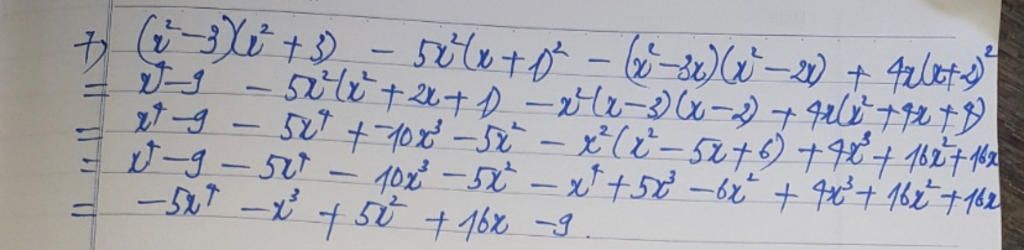 7) (x² - 3)(x² + 3) - 5x²(x + 1)² - (x² - 3x)(x² - 2x) + 4x(x + 2)²
= x⁴ - 9 - 5x²(x² + 2x + 1) - x²(x - 3)(x - 2) + 4x(x² + 4x + 4)
= x⁴ - 9 - 5x⁴ + -10x³ - 5x² - x²(x² - 5x + 6) + 4x³ + 16x² + 16x
= x⁴ - 9 - 5x⁴ - 10x³ - 5x² - x⁴ + 5x³ - 6x² + 4x³ + 16x² + 16x
= -5x⁴ - x³ + 5x² + 16x - 9.